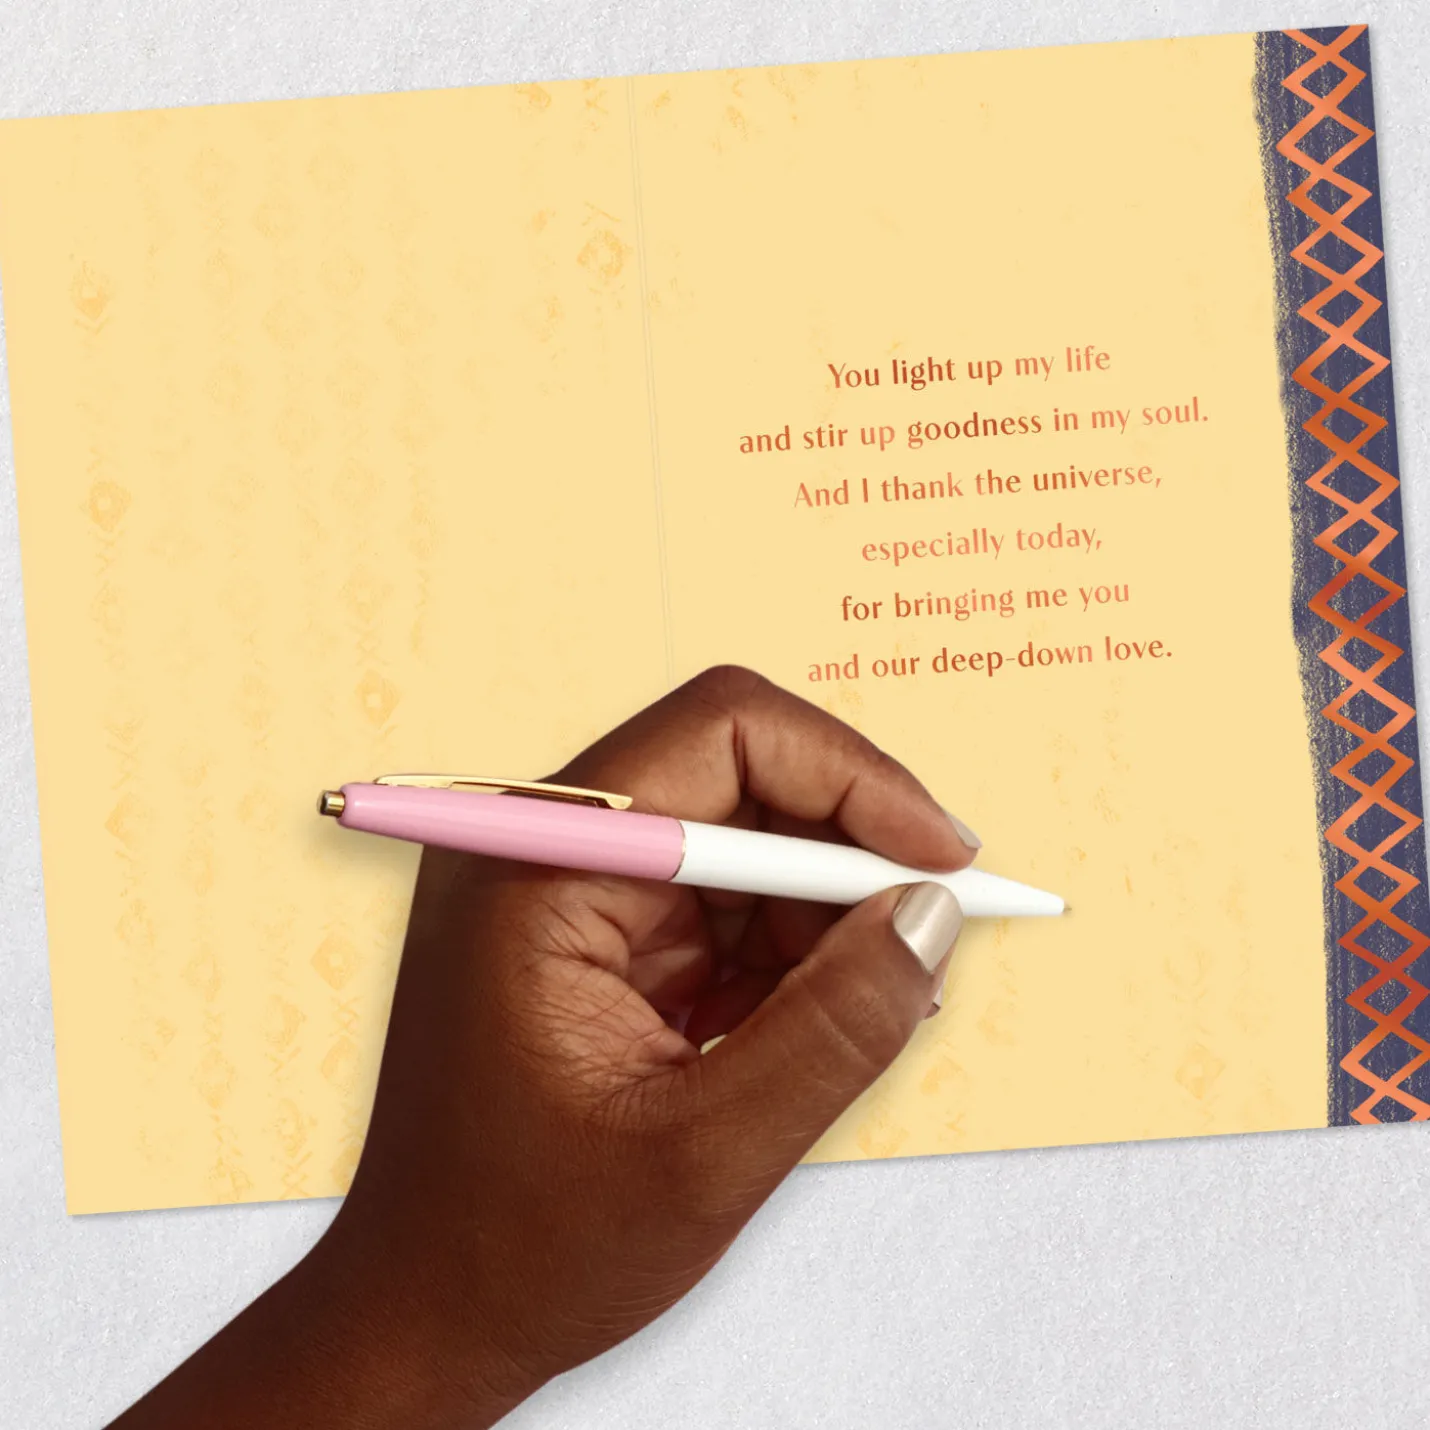 You light up my life
and stir up goodness in my soul.
And I thank the universe,
especially today,
for bringing me you
and our deep-down love.